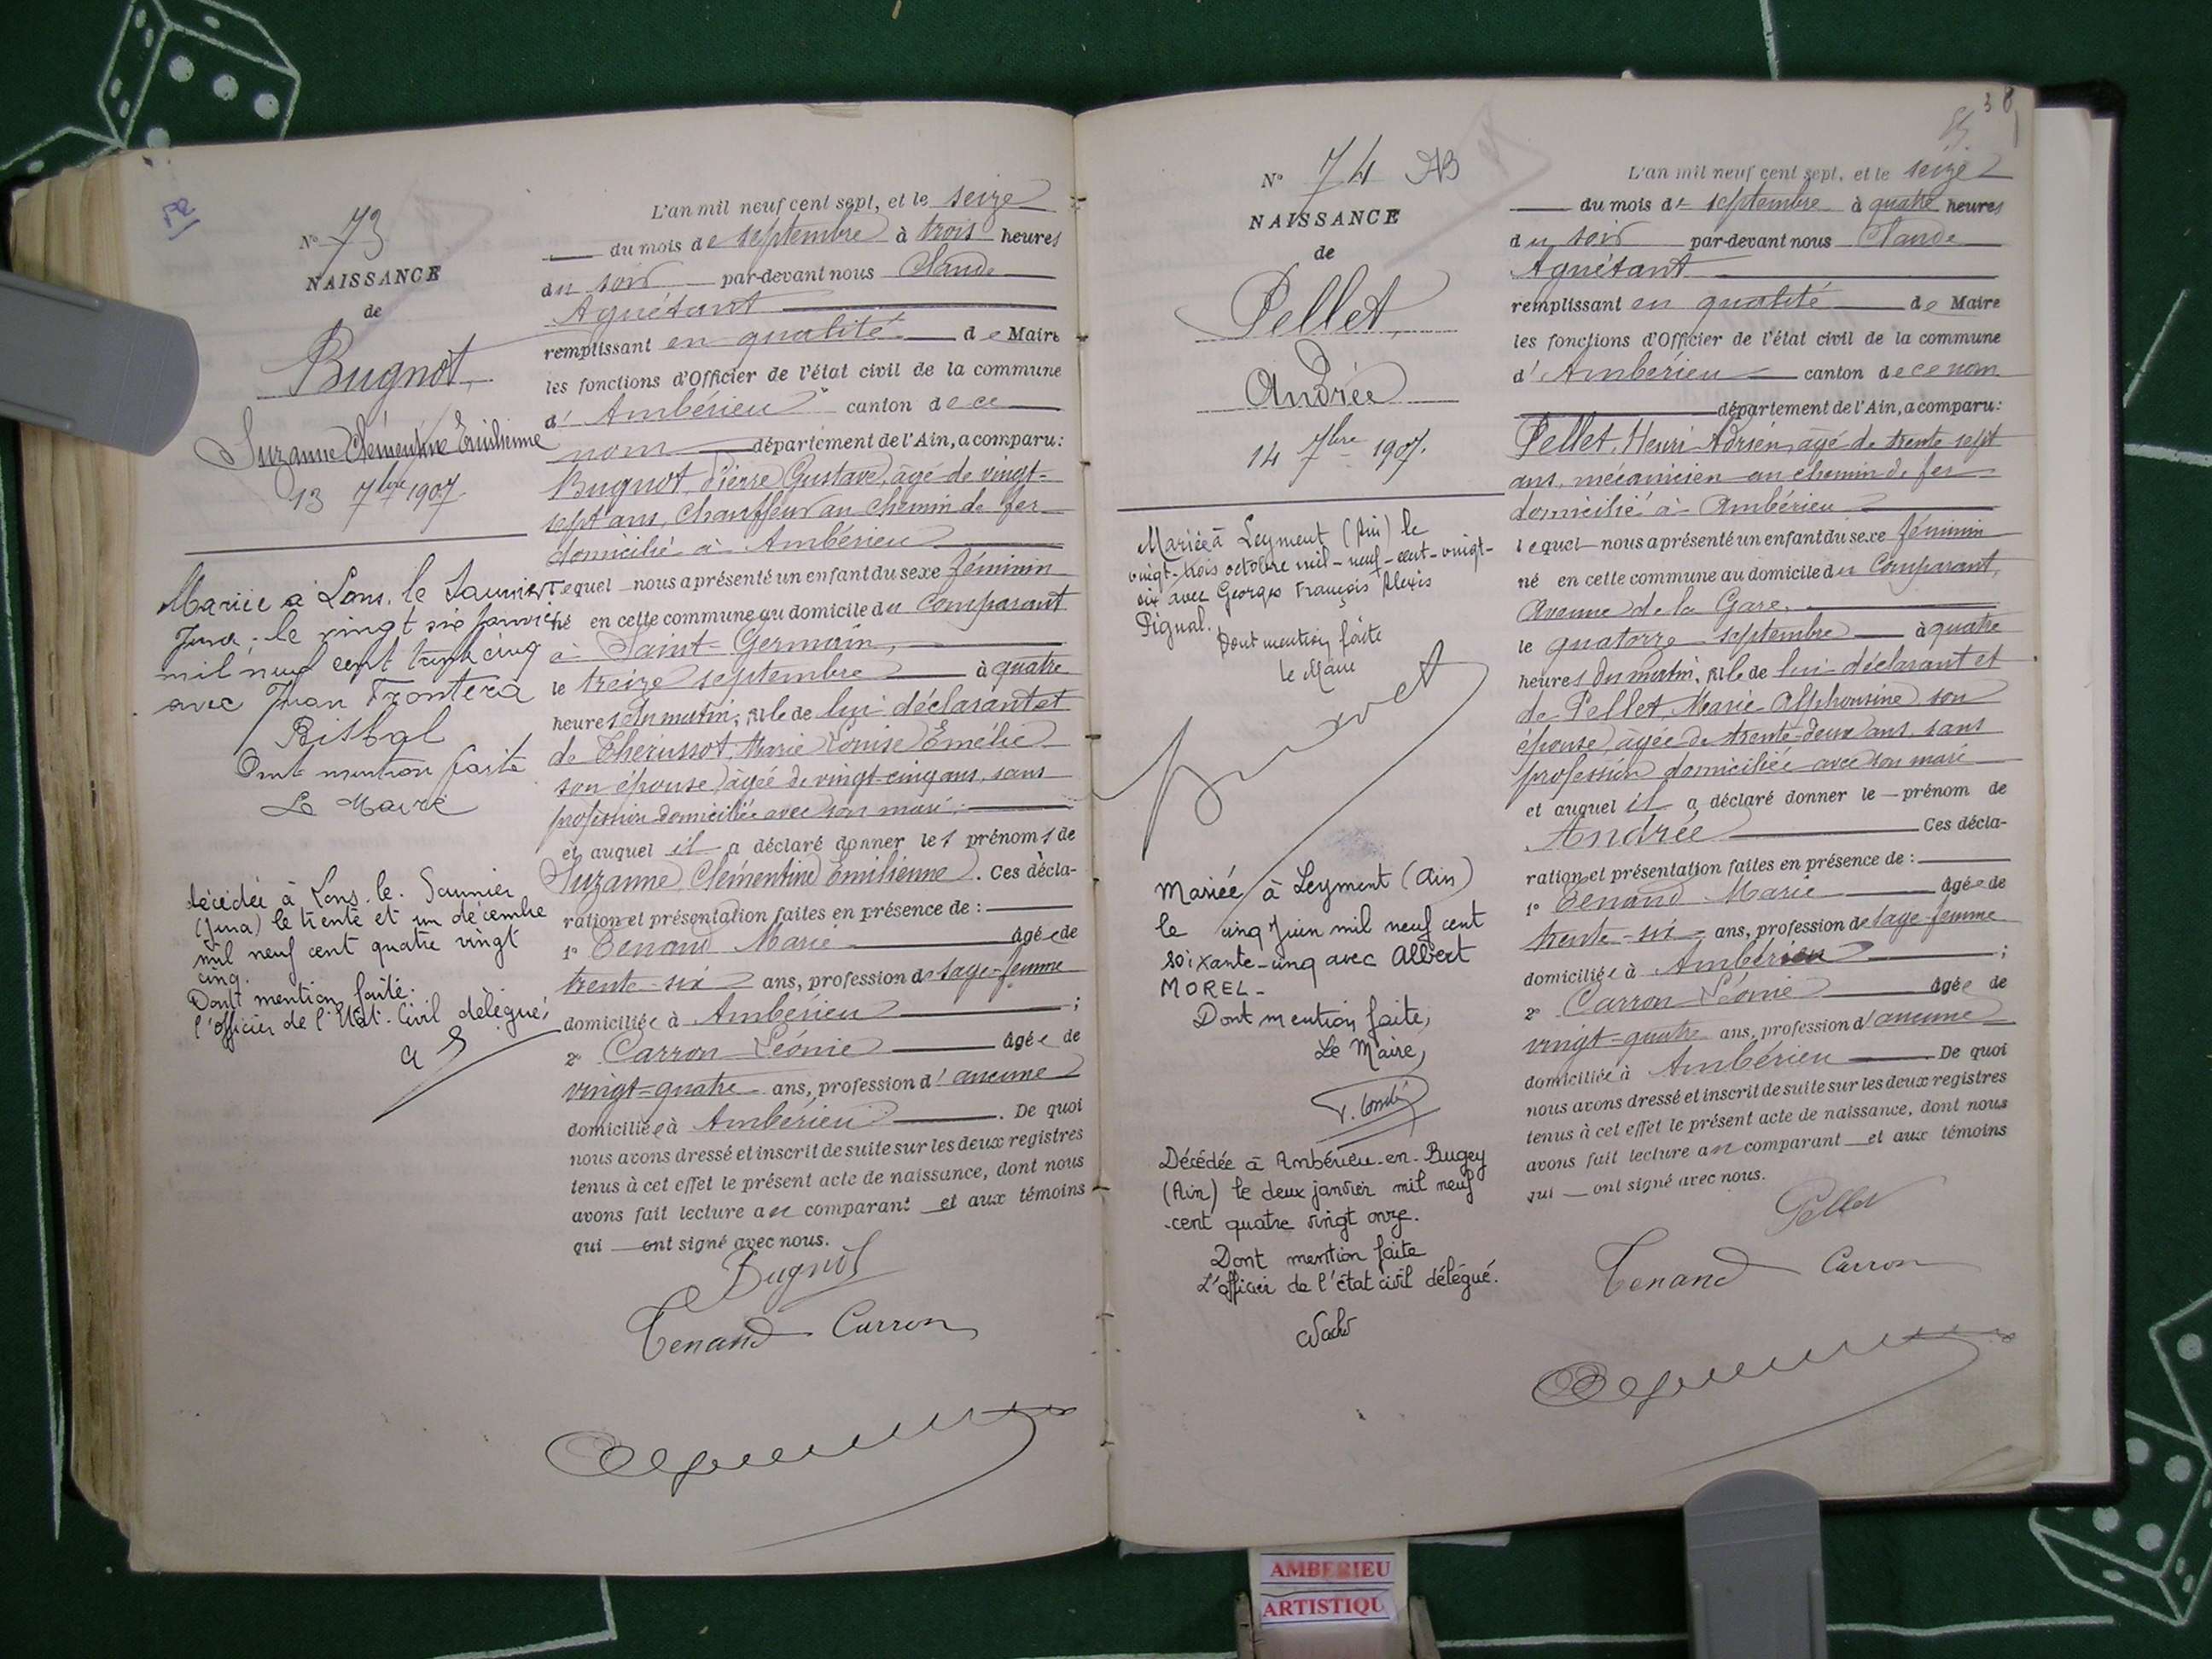 N° 73
NAISSANCE
de
Bugnot,
Suzanne Clémentine Emilienne
13 7bre 1907.
Mariée à Lons le Saunier
Jura. le vingt six Janvier
mil neuf cent trente cinq
avec Juan Frontera
Bisbal
Dont mention faite
Le Maire
décédée à Lons. le. Saunier
(Jura) le trente et un décembre
mil neuf cent quatre vingt
cinq.
Dont mention faite.
l'officier de l'Etat. Civil délégué,
L'an mil neuf cent sept, et le seize
du mois de septembre à trois heures
du soir par-devant nous Claude
Aguétant
remplissant en qualité de Maire
les fonctions d'Officier de l'état civil de la commune
d' Ambérieu canton de ce
nom département de l'Ain, a comparu:
Bugnot, Pierre Gustave, âgé de vingt-
sept ans, Chauffeur au Chemin de fer
domicilié à Ambérieu
lequel nous a présenté un enfant du sexe féminin
né en cette commune au domicile du Comparant
à Saint-Germain,
le treize septembre à quatre
heures du matin, fille de lui déclarant et
de Therussot, Marie Louise Emélie
son épouse, âgée de vingt-cinq ans, sans
profession domiciliée avec son mari.
et auquel il a déclaré donner les prénoms de
Suzanne Clémentine Emilienne. Ces décla-
ration et présentation faites en présence de :
1° Tenand Marie âgée de
trente-six ans, profession de sage-femme
domiciliée à Ambérieu ;
2° Carron Léonie âgée de
vingt=quatre ans, profession d' aucune
domiciliée à Ambérieu. De quoi
nous avons dressé et inscrit de suite sur les deux registres
tenus à cet effet le présent acte de naissance, dont nous
avons fait lecture au comparant et aux témoins
qui ont signé avec nous.
Bugnot
Tenand Carron
38
N° 74 AB
NAISSANCE
de
Pellet,
Andrée
14 7bre 1907.
Mariée à Leyment (Ain) le
vingt-trois octobre mil-neuf-cent-vingt-
six avec Georges François Alexis
Pignal.
Dont mention faite
Le Maire
Mariée à Leyment (Ain)
le cinq Juin mil neuf cent
soixante-cinq avec Albert
MOREL-
Dont mention faite,
Le Maire,
Décédée à Ambérieu-en-Bugey
(Ain) le deux janvier mil neuf
-cent quatre vingt onze.
Dont mention faite
L'officier de l'état civil délégué.
L'an mil neuf cent sept, et le seize
du mois de septembre à quatre heures
du soir par-devant nous Claude
Aguétant
remplissant en qualité de Maire
les fonctions d'Officier de l'état civil de la commune
d' Ambérieu canton de ce nom
département de l'Ain, a comparu:
Pellet, Henri Adrien, âgé de trente sept
ans, mécanicien au chemin de fer
domicilié à Ambérieu
lequel nous a présenté un enfant du sexe féminin
né en cette commune au domicile du Comparant,
Avenue de la Gare,
le quatorze septembre à quatre
heures du matin, fille de lui déclarant et
de Pellet, Marie Alphonsine son
épouse, âgée de trente-deux ans, sans
profession domiciliée avec son mari
et auquel il a déclaré donner le prénom de
Andrée Ces décla-
ration et présentation faites en présence de :
1° Tenand Marie âgée de
trente-six ans, profession de sage-femme
domiciliée à Ambérieu ;
2° Carron Léonie âgée de
vingt=quatre ans, profession d' aucune
domiciliée à Ambérieu De quoi
nous avons dressé et inscrit de suite sur les deux registres
tenus à cet effet le présent acte de naissance, dont nous
avons fait lecture au comparant et aux témoins
qui ont signé avec nous.
Pellet
Tenand Carron
AMBERIEU
ARTISTIQU